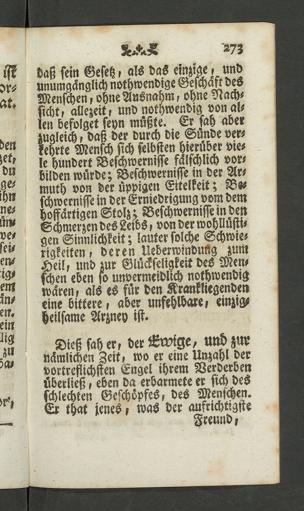 273
daß sein Gesetz, als das einzige, und
unumgänglich nothwendige Geschäft des
Menschen, ohne Ausnahm, ohne Nach-
sicht, allezeit, und nothwendig von al-
len befolget seyn müßte. Er sah aber
zugleich, daß der durch die Sünde ver-
kehrte Mensch sich selbsten hierüber vie-
le hundert Beschwernisse fälschlich vor-
bilden würde; Beschwernisse in der Ar-
muth von der üppigen Eitelkeit; Be-
schwernisse in der Erniedrigung vom dem
hoffärtigen Stolz; Beschwernisse in den
Schmerzen des Leibs, von der wohllüsti-
gen Sinnlichkeit; lauter solche Schwie-
rigkeiten, deren Ueberwindung zum
Heil, und zur Glückseligkeit des Men-
schen eben so unvermeidlich nothwendig
wären, als es für den Krankliegenden
eine bittere, aber unfehlbare, einzig-
heilsame Arzney ist.
Dieß sah er, der Ewige, und zur
nämlichen Zeit, wo er eine Unzahl der
vortreflichsten Engel ihrem Verderben
überließ, eben da erbarmete er sich des
schlechten Geschöpfes, des Menschen.
Er that jenes, was der aufrichtigste
Freund,